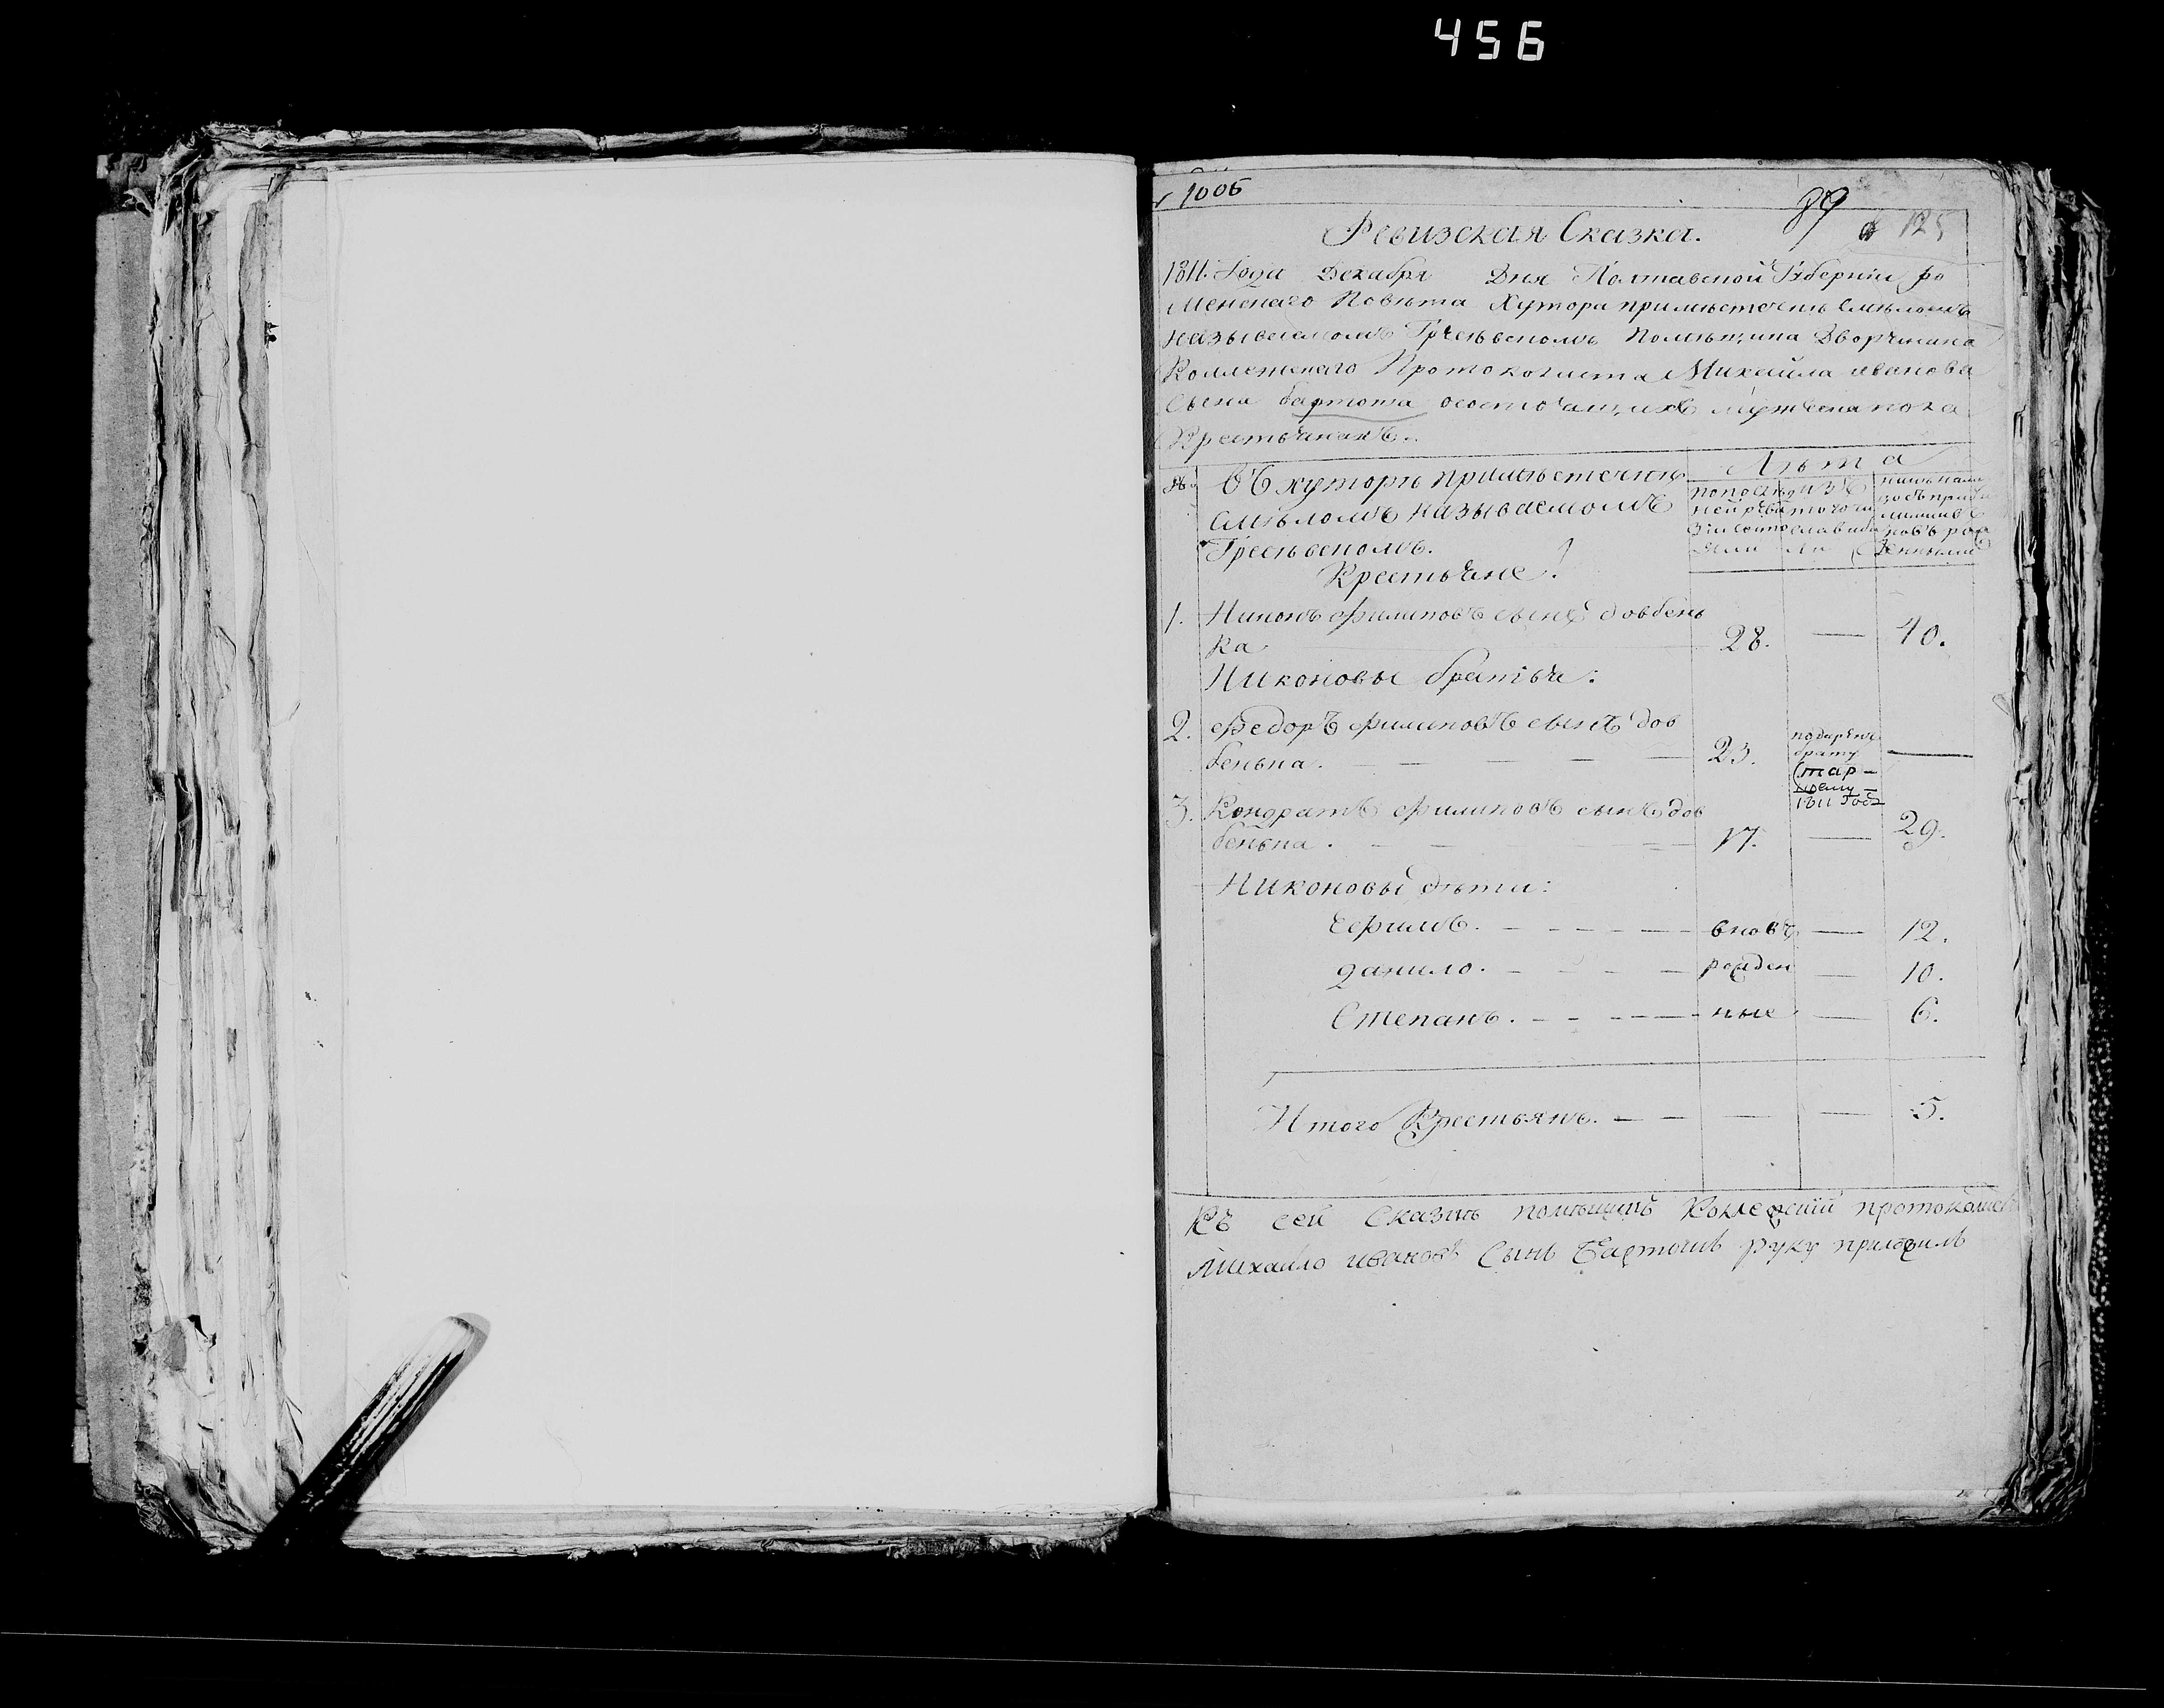 456
1006
89
125
Ревизская Сказка.
1811. Года Декабря Дня Полтавской Губернии ро
менскаго Повѣта Хутора примѣстечкѣ Смѣломъ
называемомъ Гречьвскомъ Помѣщика Дворянина
Колежскаго Протоколиста Михайла иванова
Сына бартоша осостоящихъ мужеска пола
Крестьянахъ.
№ въ хуторѣ примѣстечкѣ
Смѣломъ называемомъ
Гречьвскомъ.
Крестьяне!
Лѣта
попослѣд
ней реви
зіи состо
яли
изъ
1. Никонъ филиповъ сынъ довбень
ка 28. — 40.
Никоновы братья:
2. Федоръ филиповъ сынъ дов
бенька. 23. подаренъ брату стар- шему 1811 год —
3. Кондратъ филиповъ сынъ дов
бенька. 17. — 29.
Никоновы дѣти:
Ефимъ. вновь — 12.
данило. рожден — 10.
Степанъ. ные — 6.
Итого Крестьянъ. — — — 5.
Къ сей Сказкѣ помѣщикъ Колежскій протоколист
Михайло ивановъ Сынъ Бартошъ руку приложилъ